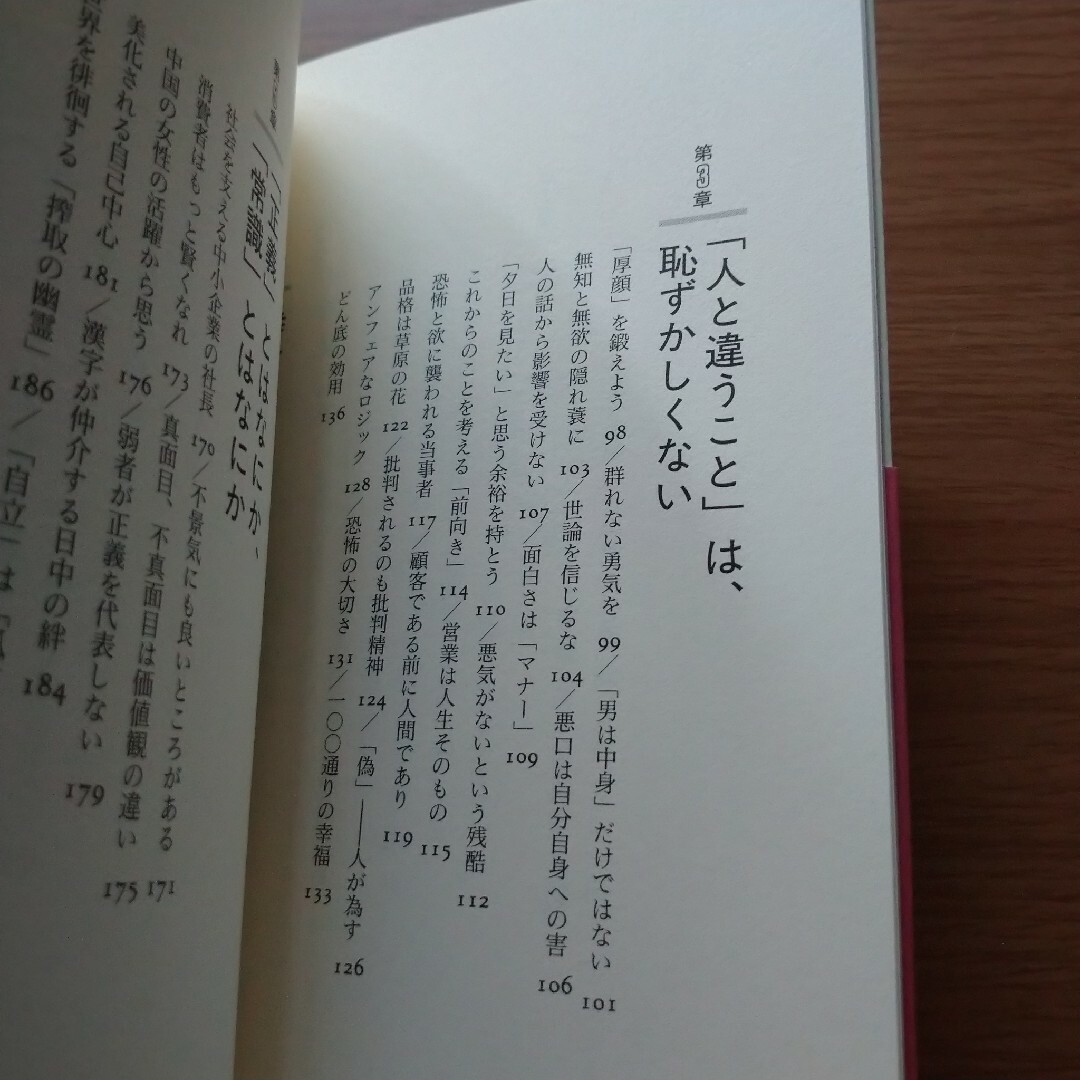 第3章
「人と違うこと」は、
恥ずかしくない
「厚顔」を鍛えよう 98/群れない勇気を 99/「男は中身」だけではない 101
無知と無欲の隠れ蓑に 103/世論を信じるな 104/悪口は自分自身への害 106
人の話から影響を受けない 107/面白さは「マナー」 109
「夕日を見たい」と思う余裕を持とう 110/悪気がないという残酷 112
これからのことを考える「前向き」 114/営業は人生そのもの 115
恐怖と欲に襲われる当事者 117/顧客である前に人間であり 119
品格は草原の花 122/批判されるのも批判精神 124/「偽」——人が為す 126
アンフェアなロジック 128/恐怖の大切さ 131/一〇〇通りの幸福 133
どん底の効用 136
「正義」とはなにか、
「常識」とはなにか
社会を支える中小企業の社長 170/不景気にも良いところがある 171
消費者はもっと賢くなれ 173/真面目、不真面目は価値観の違い 175
中国の女性の活躍から思う 176/弱者が正義を代表しない 179
美化される自己中心 181/漢字が仲介する日中の絆 184
界を徘徊する「搾取の幽霊」 186/「自立」は